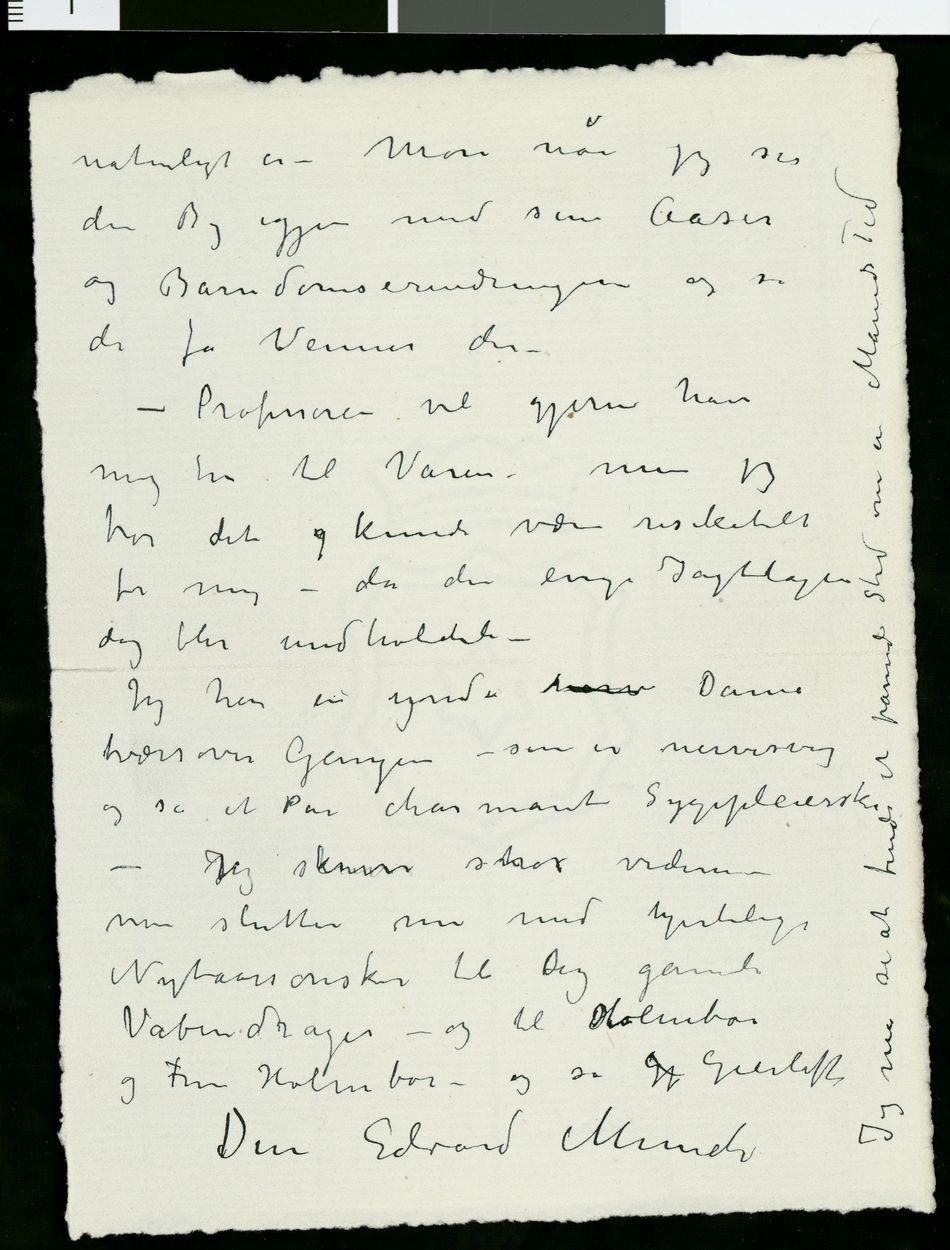 naturligt er – Mon når jeg ser
den By igjen med sine Aaser
og Barndomserindringer og se
de få Venner der –
– Professoren vil gjerne have
mig her til Våren – men jeg
tror det kunde være risikabelt
for mig – da den evige Iagttagen
dog blir uudholdelig –
Jeg har en yndig Dame
tværs over Gangen – som er nervesvag
og så et Par charmante Sygepleiersker
– Jeg skriver strax videre –
men slutter nu med hjertelige
Nytaarsønsker til Dig gamle
Vabendrager – og til Holmboe
og Fru Holmboe – og så Gierløff
Din Edvard Munch
Jeg må se at finde et passende Sted om en Måneds Tid